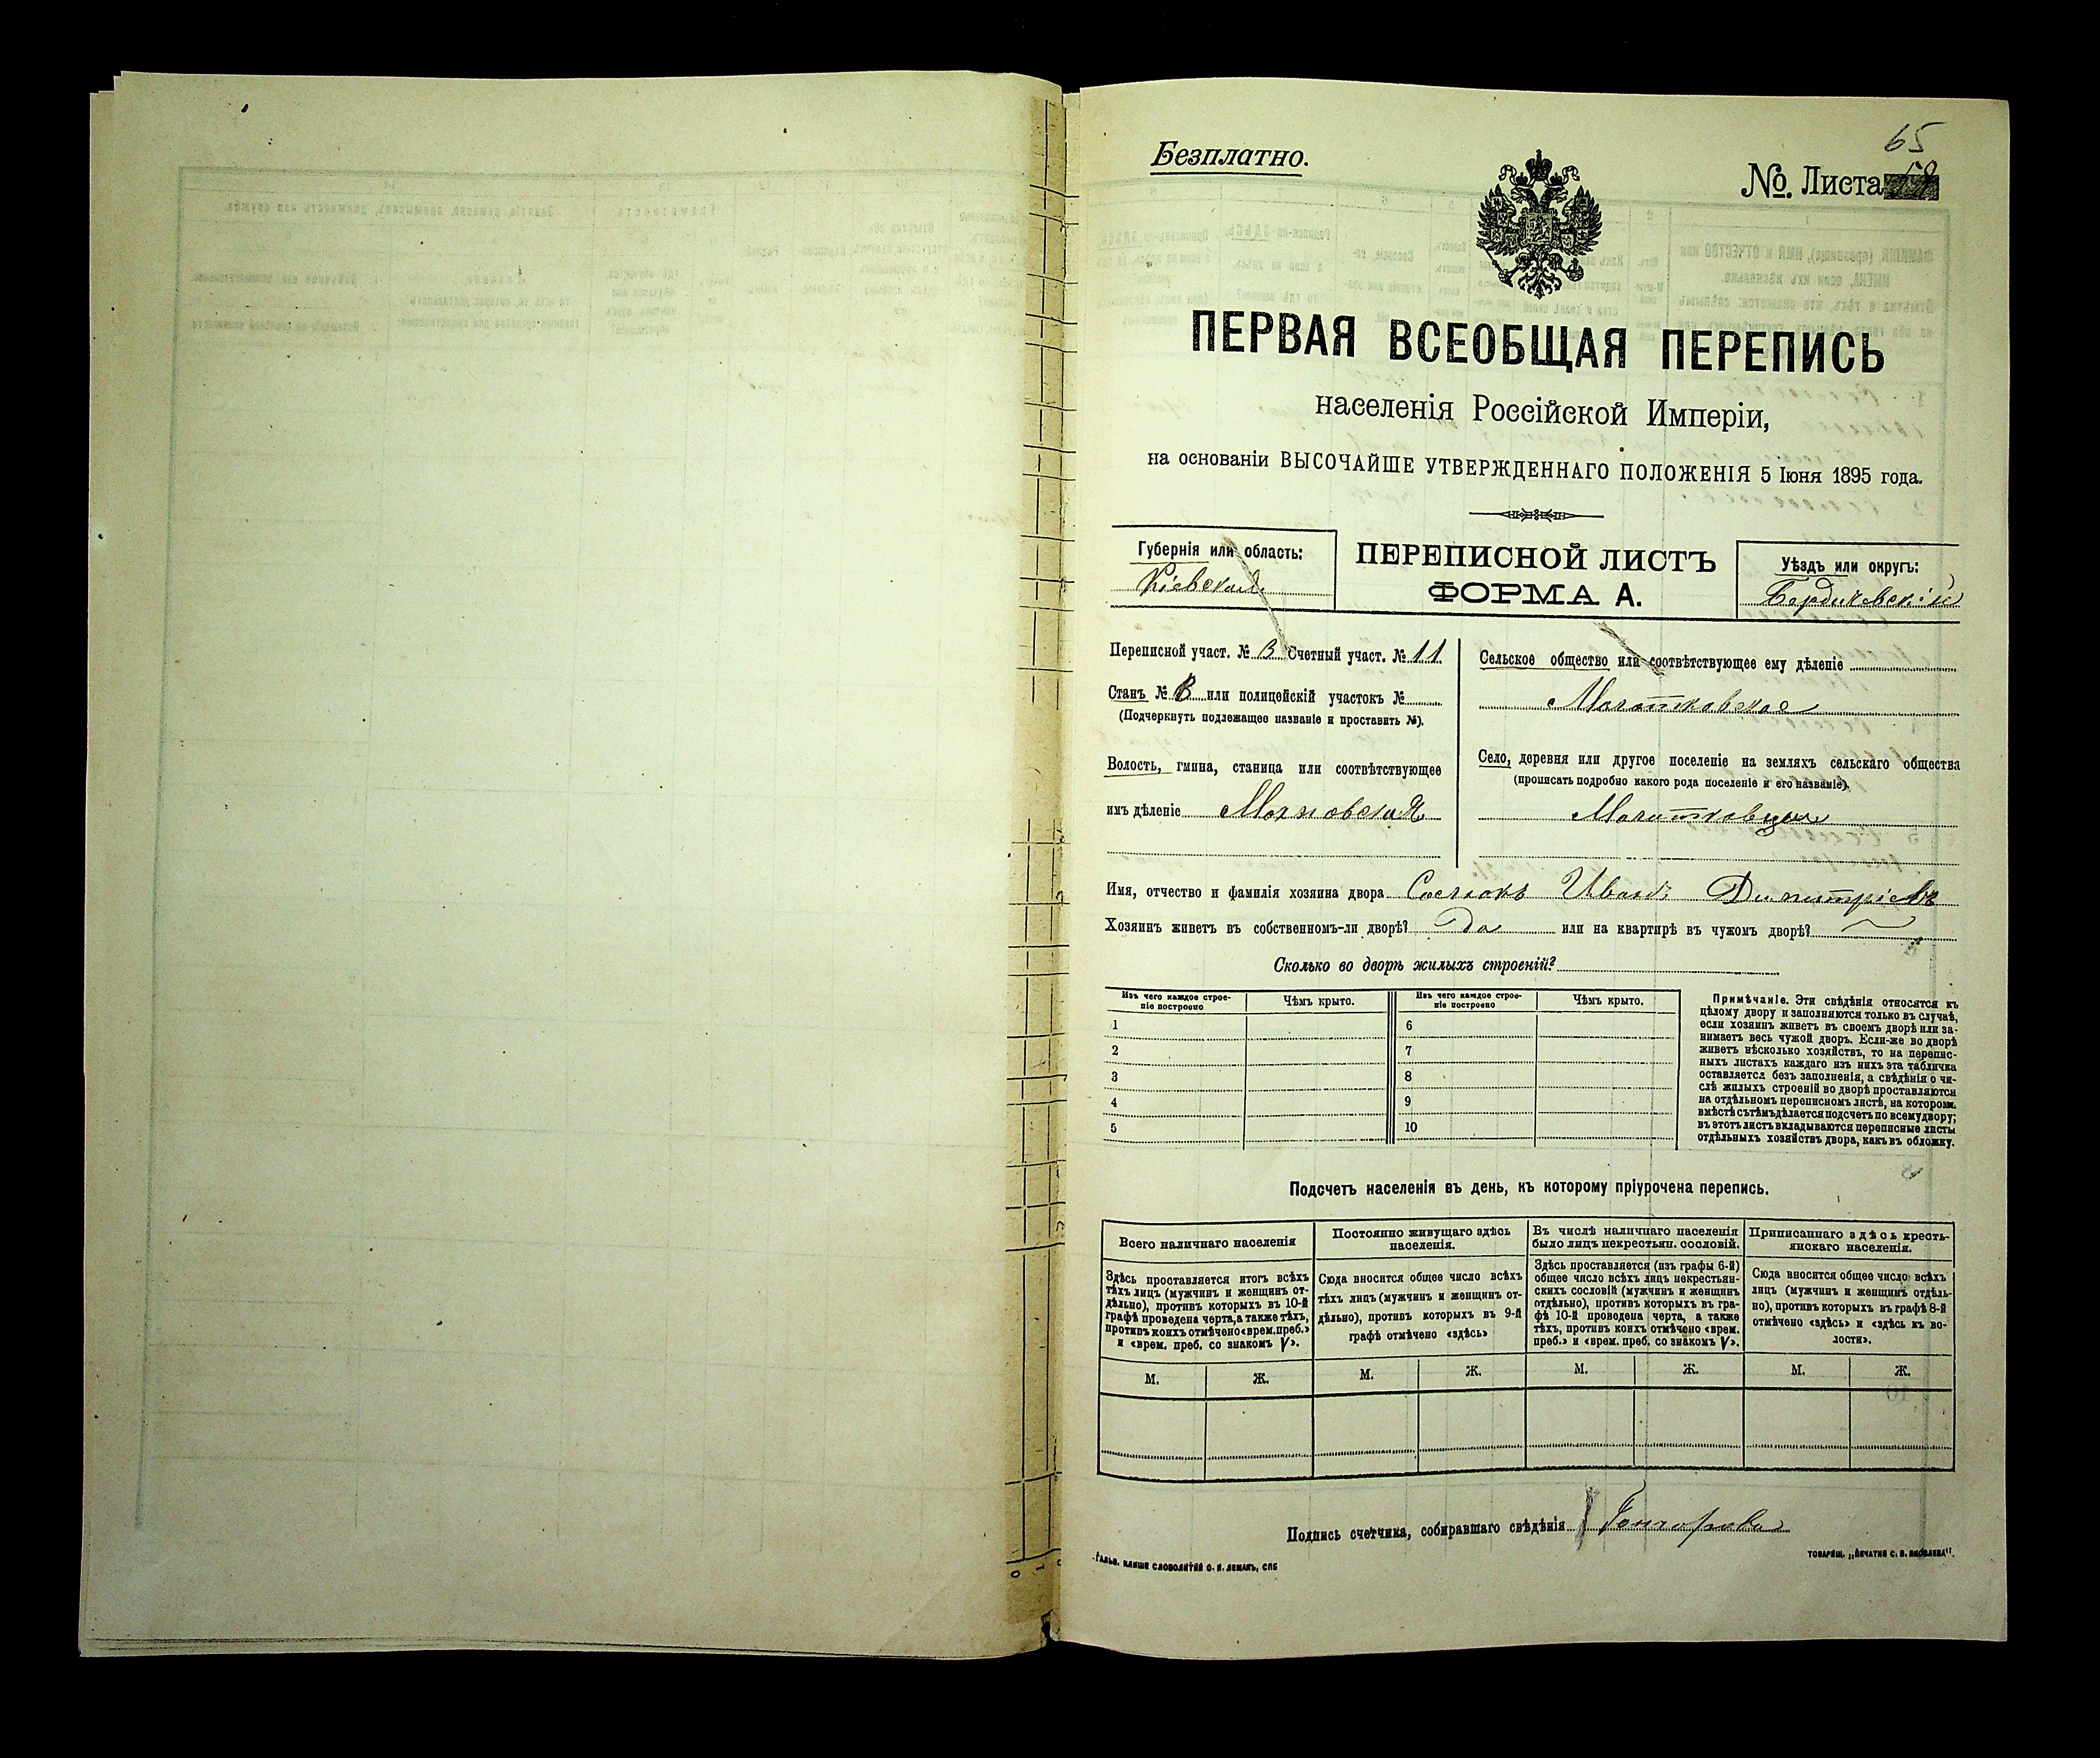 65
Безплатно.
№ Листа
ПЕРВАЯ ВСЕОБЩАЯ ПЕРЕПИСЬ
населенія Россійской Имперіи,
на основаніи ВЫСОЧАЙШЕ УТВЕРЖДЕННАГО ПОЛОЖЕНІЯ 5 Іюня 1895 года.
Губернія или область:
Кіевская
ПЕРЕПИСНОЙ ЛИСТЪ
ФОРМА А.
Уѣздъ или округъ:
Бердичевскій
Переписной участ. № 3 Счетный участ. № 11
Станъ № 3 или полицейскій участокъ №
(Подчеркнуть подлежащее названіе и проставить №).
Волость, гмина, станица или соотвѣтствующее
имъ дѣленіе Махновская
Сельское общество или соотвѣтствующее ему дѣленіе
Село, деревня или другое поселеніе на земляхъ сельскаго общества
(прописать подробно какого рода поселеніе и его названіе).
Имя, отчество и фамилія хозяина двора Иванъ Димитріевъ
Хозяинъ живетъ въ собственномъ-ли дворѣ? Да или на квартирѣ въ чужомъ дворѣ?
Сколько во дворѣ жилыхъ строеній?
Изъ чего каждое строе-
ніе построено
Чѣмъ крыто.
Изъ чего каждое строе-
ніе построено
Чѣмъ крыто.
1
2
3
4
5
6
7
8
9
10
Примѣчаніе. Эти свѣдѣнія относятся къ
цѣлому двору и заполняются только въ случаѣ,
если хозяинъ живетъ въ своемъ дворѣ или за-
нимаетъ весь чужой дворъ. Если-же во дворѣ
живетъ нѣсколько хозяйствъ, то на перепис-
ныхъ листахъ каждаго изъ нихъ эта табличка
оставляется безъ заполненія, а свѣдѣнія о чи-
слѣ жилыхъ строеній во дворѣ проставляются
на отдѣльномъ переписномъ листѣ, на которомъ
вмѣстѣ съ тѣмъ дѣлается подсчетъ по всему двору;
въ этотъ листъ вкладываются переписные листы
отдѣльныхъ хозяйствъ двора, какъ въ обложку.
Подсчетъ населенія въ день, къ которому пріурочена перепись.
Всего наличнаго населенія
Здѣсь проставляется итогъ всѣхъ
тѣхъ лицъ (мужчинъ и женщинъ от-
дѣльно), противъ которыхъ въ 10-й
графѣ проведена черта, а также тѣхъ,
противъ коихъ отмѣчено «врем. преб.»
и «врем. преб. со знакомъ V».
Постоянно живущаго здѣсь
населенія.
Сюда вносится общее число всѣхъ
тѣхъ лицъ (мужчинъ и женщинъ от-
дѣльно), противъ которыхъ въ 9-й
графѣ отмѣчено «здѣсь»
Въ числѣ наличнаго населенія
было лицъ некрестьян. сословій.
Здѣсь проставляется (изъ графы 6-й)
общее число всѣхъ лицъ некрестьян-
скихъ сословій (мужчинъ и женщинъ
отдѣльно), противъ которыхъ въ гра-
фѣ 10-й проведена черта, а также
тѣхъ, противъ коихъ отмѣчено «врем.
преб.» и «врем. преб. со знакомъ V».
Приписаннаго здѣсь кресть-
янскаго населенія.
Сюда вносится общее число всѣхъ
лицъ (мужчинъ и женщинъ отдѣль-
но), противъ которыхъ въ графѣ 8-й
отмѣчено «здѣсь» и «здѣсь къ во-
лости».
М. Ж. М. Ж. М. Ж. М. Ж.
Подпись счетчика, собиравшаго свѣдѣнія
Гальв. клише словолитни О. И. Леманъ, СПБ
ТОВАРИЩ. „ПЕЧАТНЯ С. П. ЯКОВЛЕВА".